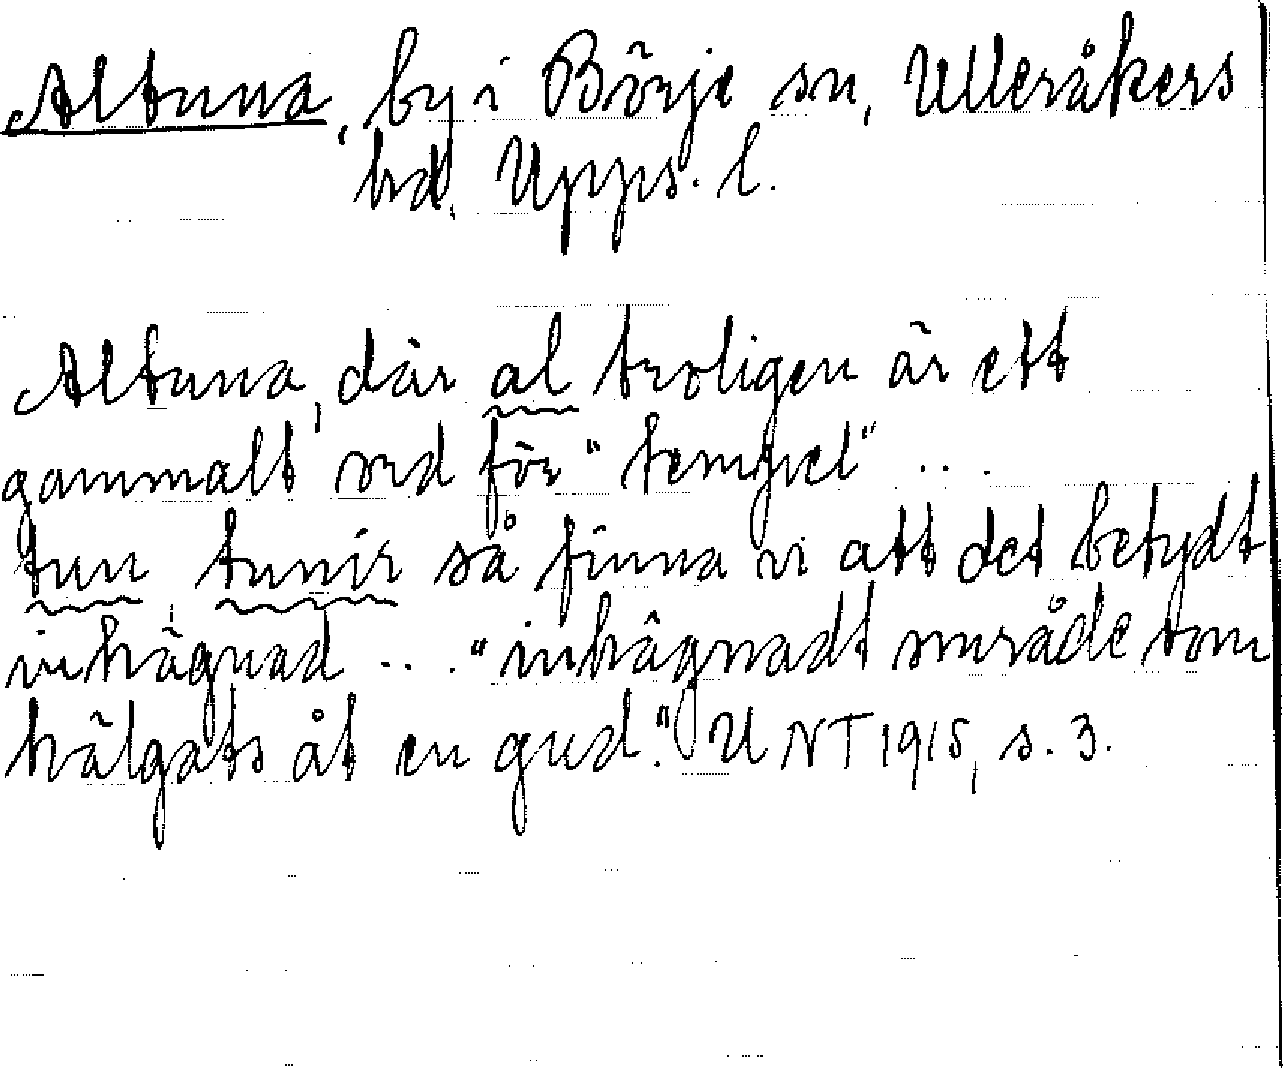 Altuna, by i Börje sn, Ulleråkers
hd, Upps. l.
Altuna, där al troligen är ett
gammalt ord för "tempel" ...
tun, tunir så finna vi att det betydt
inhägnad ... "inhägnadt område som
hälgats åt en gud." UNT 1915, s. 3.